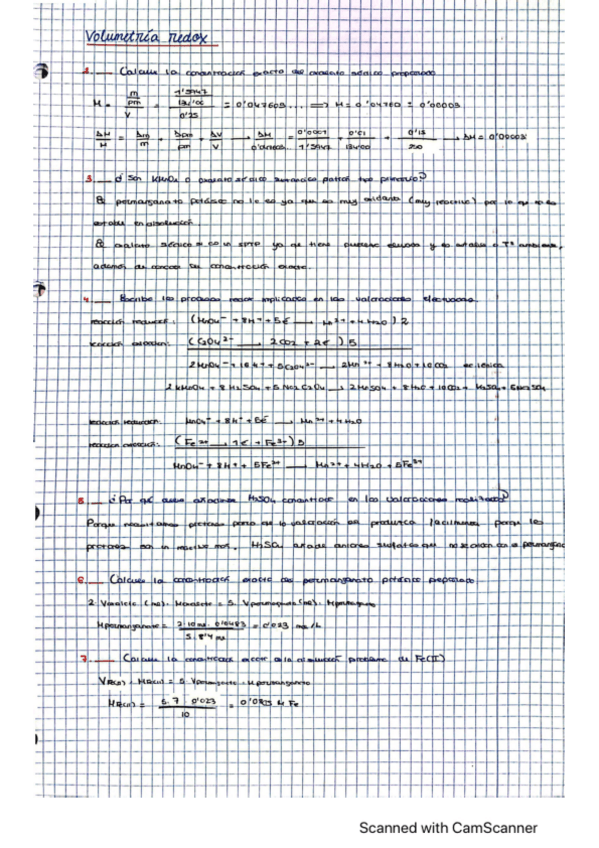 Volumetría redox
1.— Calcula la concentración exacta del oxalato sódico preparado
M = m/pm / V = / 0'25 = 0'047603... ⟹ M = 0'04760 ± 0'00003
ΔM/M = Δm/m + Δpm/pm + ΔV/V → ΔM = 0'00003
3.— ¿Son KMnO4 o oxalato sódico sustancias patrón tipo primario?
El permanganato potásico no lo es ya que es muy oxidante (muy reactivo) por lo que no es
estable en disolución.
El oxalato sódico si ya que tiene pureza elevada y es estable a Tª ambiente,
además de conocer su concentración exacta.
4.— Escribe los procesos redox implicados en las valoraciones
reacción reducción: (MnO4⁻ + 8H⁺ + 5e⁻ → Mn²⁺ + 4H2O) 2
reacción oxidación: (C2O4²⁻ → 2CO2 + 2e⁻) 5
2MnO4⁻ + 16H⁺ + 5C2O4²⁻ → 2Mn²⁺ + 8H2O + 10CO2
2KMnO4 + 8H2SO4 + 5Na2C2O4 → 2MnSO4 + 8H2O + 10CO2 +
reacción reducción: MnO4⁻ + 8H⁺ + 5e⁻ → Mn²⁺ + 4H2O
reacción oxidación: (Fe²⁺ → 1e⁻ + Fe³⁺) 5
MnO4⁻ + 8H⁺ + 5Fe²⁺ → Mn²⁺ + 4H2O + 5Fe³⁺
5.— ¿Por qué H2SO4 concentrado en las valoraciones realizadas?
Porque necesitamos protones para que la valoración se produzca fácilmente, porque los
protones son un reactivo más. H2SO4 añade aniones sulfato que no se oxidan con el permanganato
6.— Calcula la concentración exacta del permanganato potásico preparado
2 · Voxalato (mL) · Moxalato = 5 · Vpermanganato (mL) · Mpermanganato
Mpermanganato = 2 · 10 mL · 0'0483 / 5 · 8'4 mL = 0'023 mol/L
7.— Calcula la concentración exacta de la disolución problema de Fe(II)
VFe(II) · MFe(II) = 5 · Vpermanganato · Mpermanganato
MFe(II) = 5 · 7 · 0'023 / 10 = 0'0805 M Fe
Scanned with CamScanner